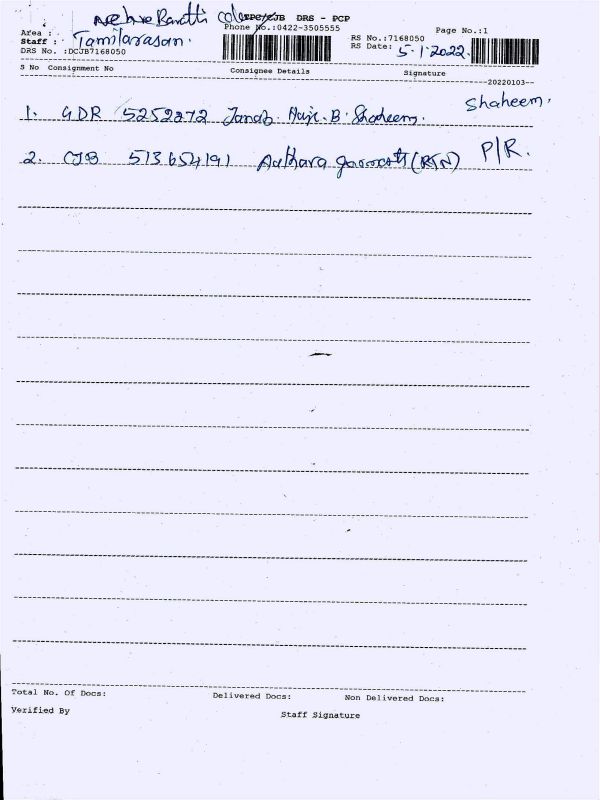 CJB DRS - PCP
Area :
Staff : Tamilarasan.
DRS No. :DCJB7168050
Phone No.:0422-3505555
RS No.:7168050
RS Date: 5-1-2022.
Page No.:1
S No Consignment No Consignee Details Signature
20220103
1. GDR 5252272 Janab. Haji. B. Shaheem. Shaheem.
2. CJB 513654191 (RTN) P/R.
Total No. Of Docs: Delivered Docs: Non Delivered Docs:
Verified By Staff Signature